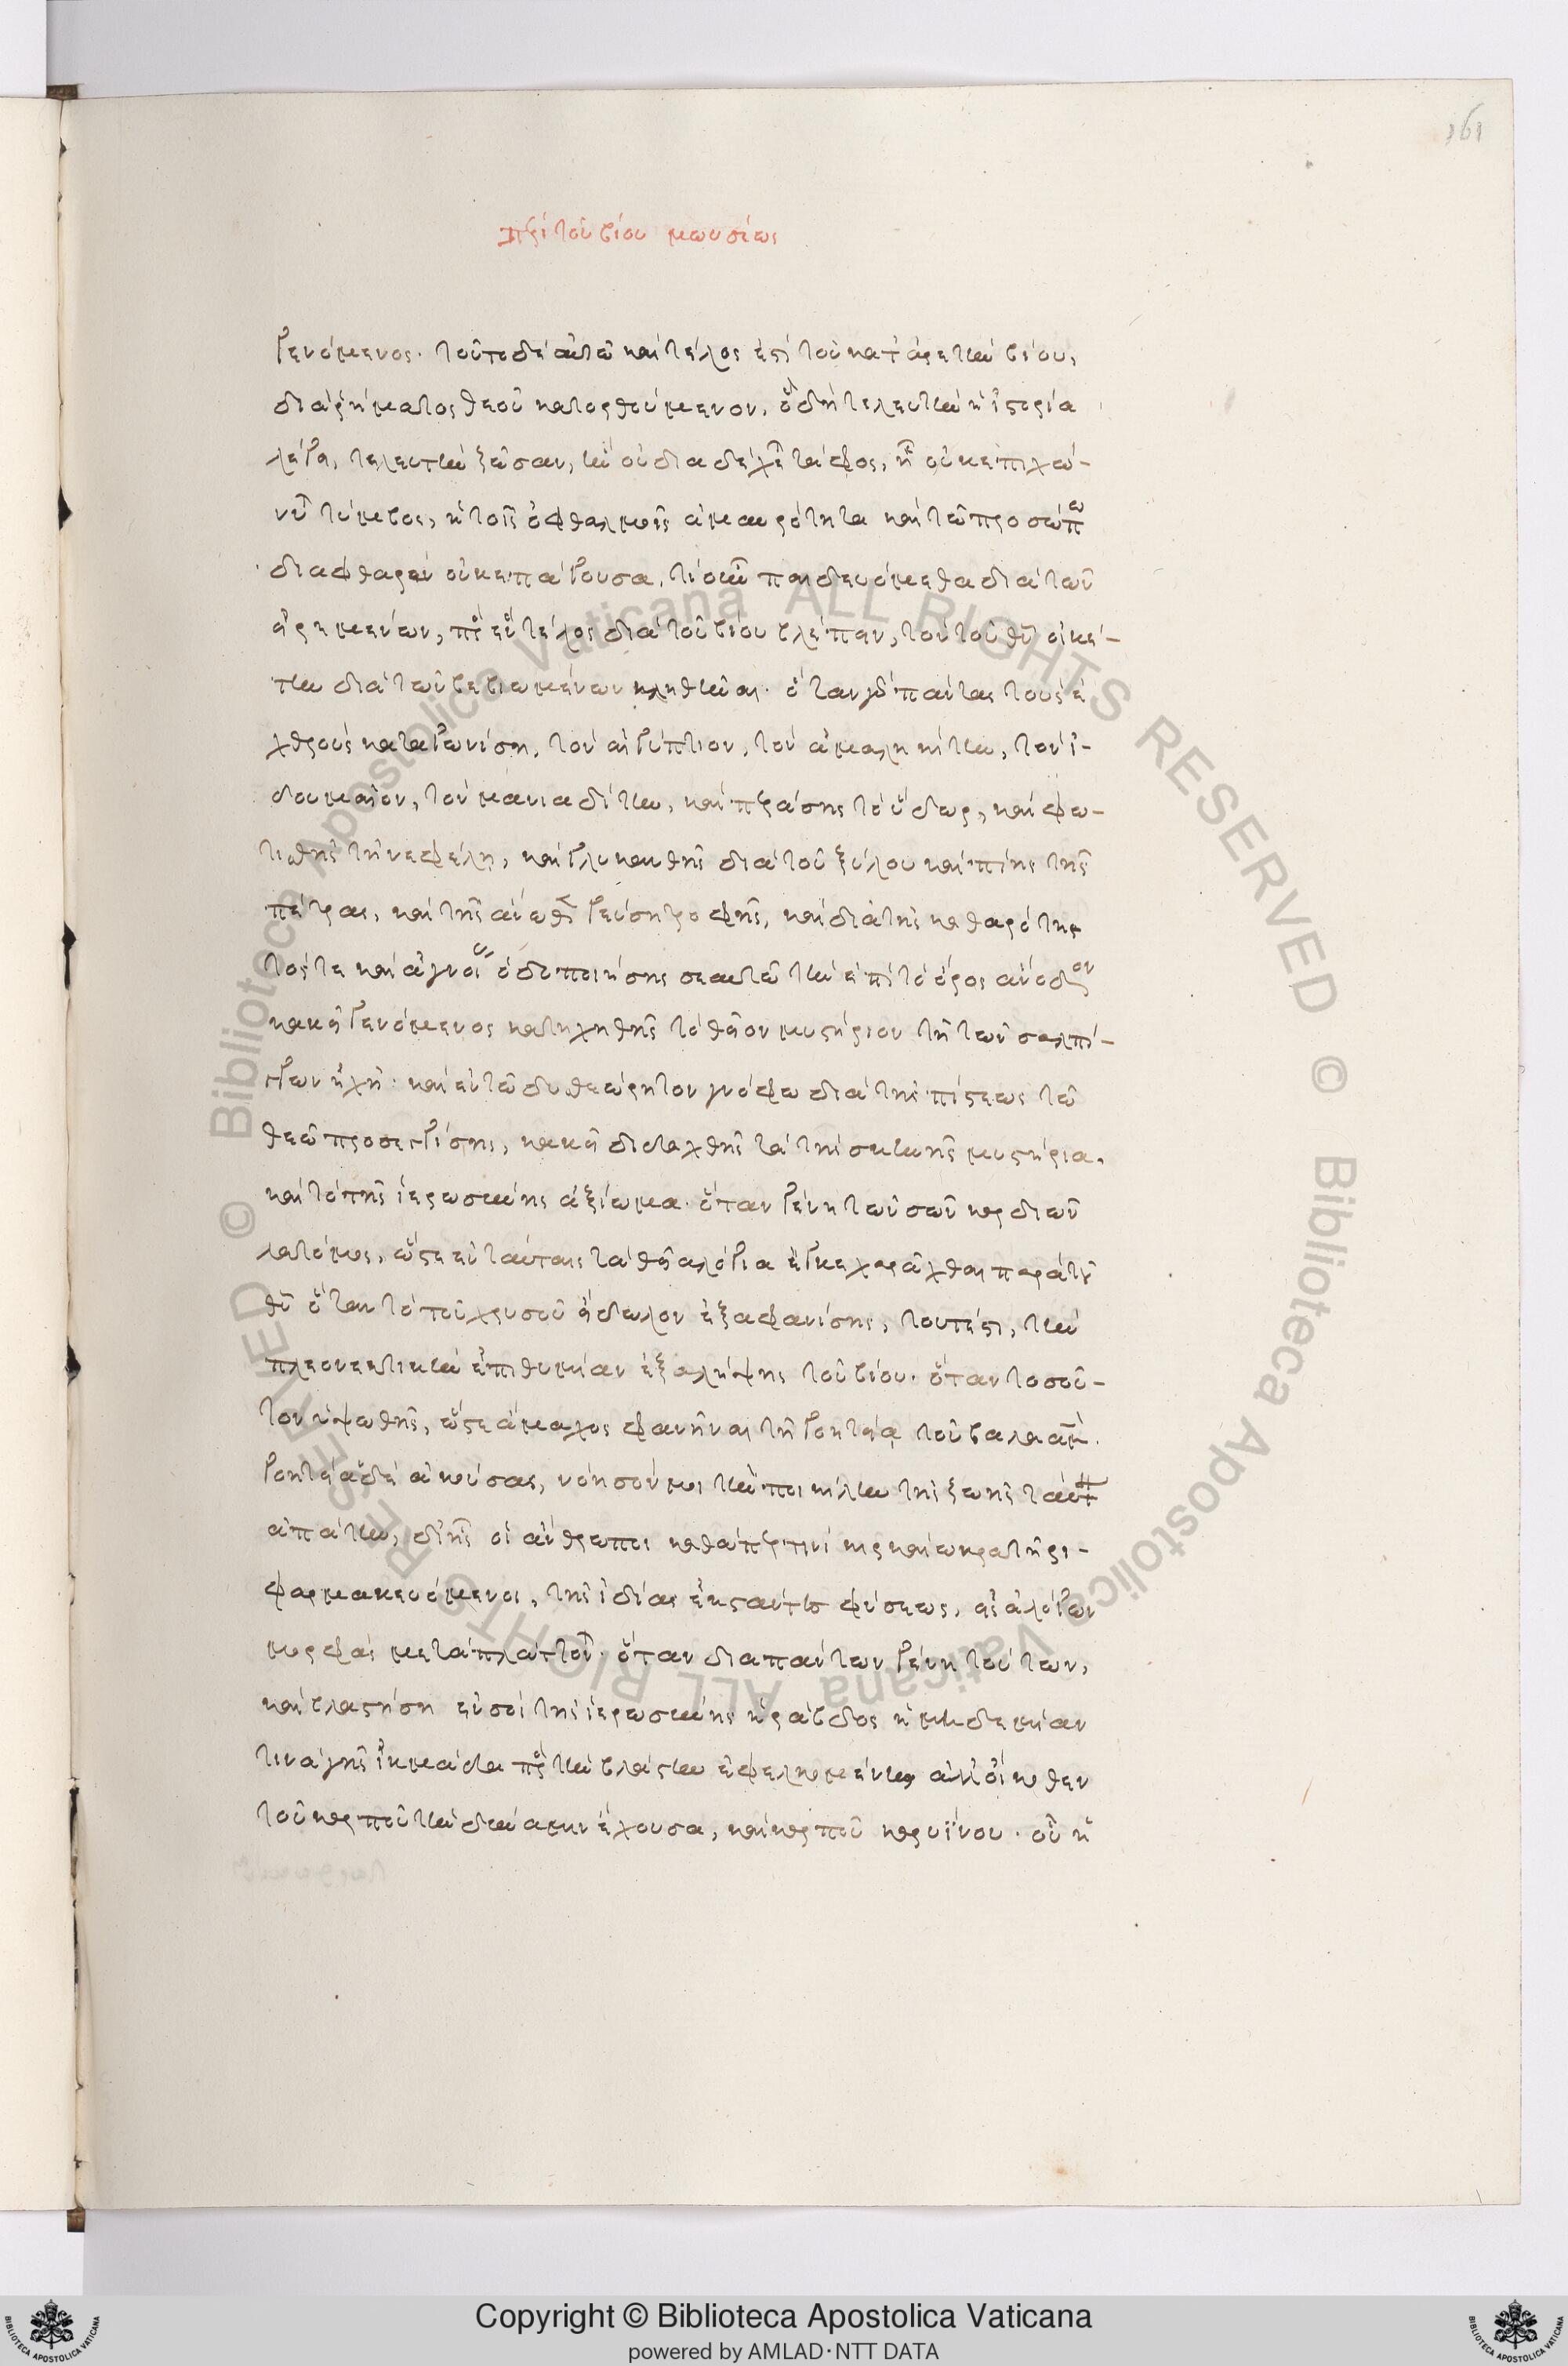 161
περὶ τοῦ βίου μωυσέως
γενόμενος. τοῦτο δὲ αὐτῶ καὶ τέλος ἐστὶ τοῦ κατ' ἀρετὴν βίου,
διὰ ῥήματος θεοῦ κατορθούμενον. ὃ δὴ τελευτὴν ἡ ἱστορία
λέγει, τελευτὴν ζῶσαν, ἣν οὐ διαδέχεται τάφος, ἧ οὐκ ἐπιχώ-
νυται τύμβος, ἡ τοῖς ὀφθαλμοῖς ἀμαυρότητα καὶ τῶ προσώπω
διαφθορὰν οὐκ ἐπάγουσα. τί οὖν παιδευόμεθα διὰ τῶν
εἰρημένων, πρὸς ἓν τέλος διὰ τοῦ βίου βλέπειν, τὸν τοῦ θῦ οἰκέ-
την διὰ τῶν βεβιωμένων κληθῆναι. ὅταν γὰρ πάντας τοὺς ἐ
χθροὺς καταγωνίση, τὸν αἰγύπτιον, τὸν ἀμαληκίτην, τὸν ἰ-
δουμαῖον, τὸν μανιαδίτην, καὶ περάσης τὸ ὕδωρ, καὶ φω-
τισθῆς τῆ νεφέλη, καὶ γλυκανθῆς διὰ τοῦ ξύλου καὶ πίης τῆς
πέτρας, καὶ τῆς ἄνωθεν γεύση τροφῆς, καὶ διὰ τῆς καθαρότη
τός τε καὶ ἁγνείας ὁδοποιήσης σεαυτῶ τὴν ἐπὶ τὸ ὄρος ἄνοδον
κἀκεῖ γενόμενος κατηχηθῆς τὸ θεῖον μυστήριον τῆ τῶν σαλπί-
γγων ἠχῆ. καὶ ἐν τῶ δυσθεώρητον γνόφω διὰ τῆς πίστεως τῶ
θεῶ προσεγγίσης, κἀκεῖ διδαχθῆς τὰ τῆς σκηνῆς μυστήρια,
καὶ τὸ τῆς ἱερωσύνης ἀξίωμα. ὅταν γένη τῶν σῶν καρδιῶν
λατόμος, ὥστε ἐν ταύταις τὰ θεῖα λόγια ἐγκεχαρᾶχθαι παρὰ τοῦ
θῦ ὅταν τὸ τοῦ χρυσοῦ εἴδωλον ἐξαφανίσης, τουτέστι, τὴν
πλεονεκτικὴν ἐπιθυμίαν ἐξαλείψης τοῦ βίου. ὅταν τοσοῦ-
τον ὑψωθῆς, ὥστε ἄμαχος φανῆναι τῆ γοητεία τοῦ βαλαάμ.
γοητείαν δὲ ἀκούσας, νόησόν μοι τὴν ποικίλην τῆς ζωῆς ταύτης
ἀπάτην, δι' ἧς οἱ ἄνθρωποι καθάπερ τινὶ κιρκαίω κρατῆρι
φαρμακευόμενοι, τῆς ἰδίας ἐκστάντες φύσεως, εἰς ἀλόγων
μορφὰς μεταπλάττονται. ὅταν διὰ πάντων γένη τούτων,
καὶ βλαστήση ἐν σοὶ τῆς ἱερωσύνης ἡ ῥάβδος ἡ μηδεμίαν
τινὰ γῆς ἰκμάδα πρὸς τὴν βλάστην ἐφελκομένη ἀλλ' οἴκοθεν
τοῦ καρποῦ τὴν δύναμιν ἔχουσα, καὶ καρποῦ καρυΐνου. οὗ ἡ